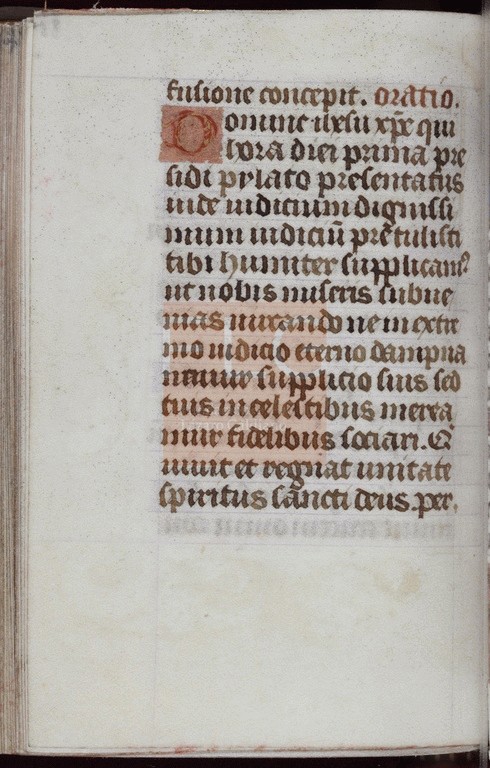 fusione concepit. oratio.
Domine ihesu xpe qui
hora diei prima pre
sidi pylato presentatus
inde iudicium dignissi
mum iudiciū pretulisti
tibi humiter supplicam⁹
ut nobis miseris subue
nias mirando ne in extre
mo iudicio eterno dampna
supplicio suis sed
tuis in celestibus merea
mur fidelibus sociari. Q
uiuit et regnat unitate
spiritus sancti deus. per.